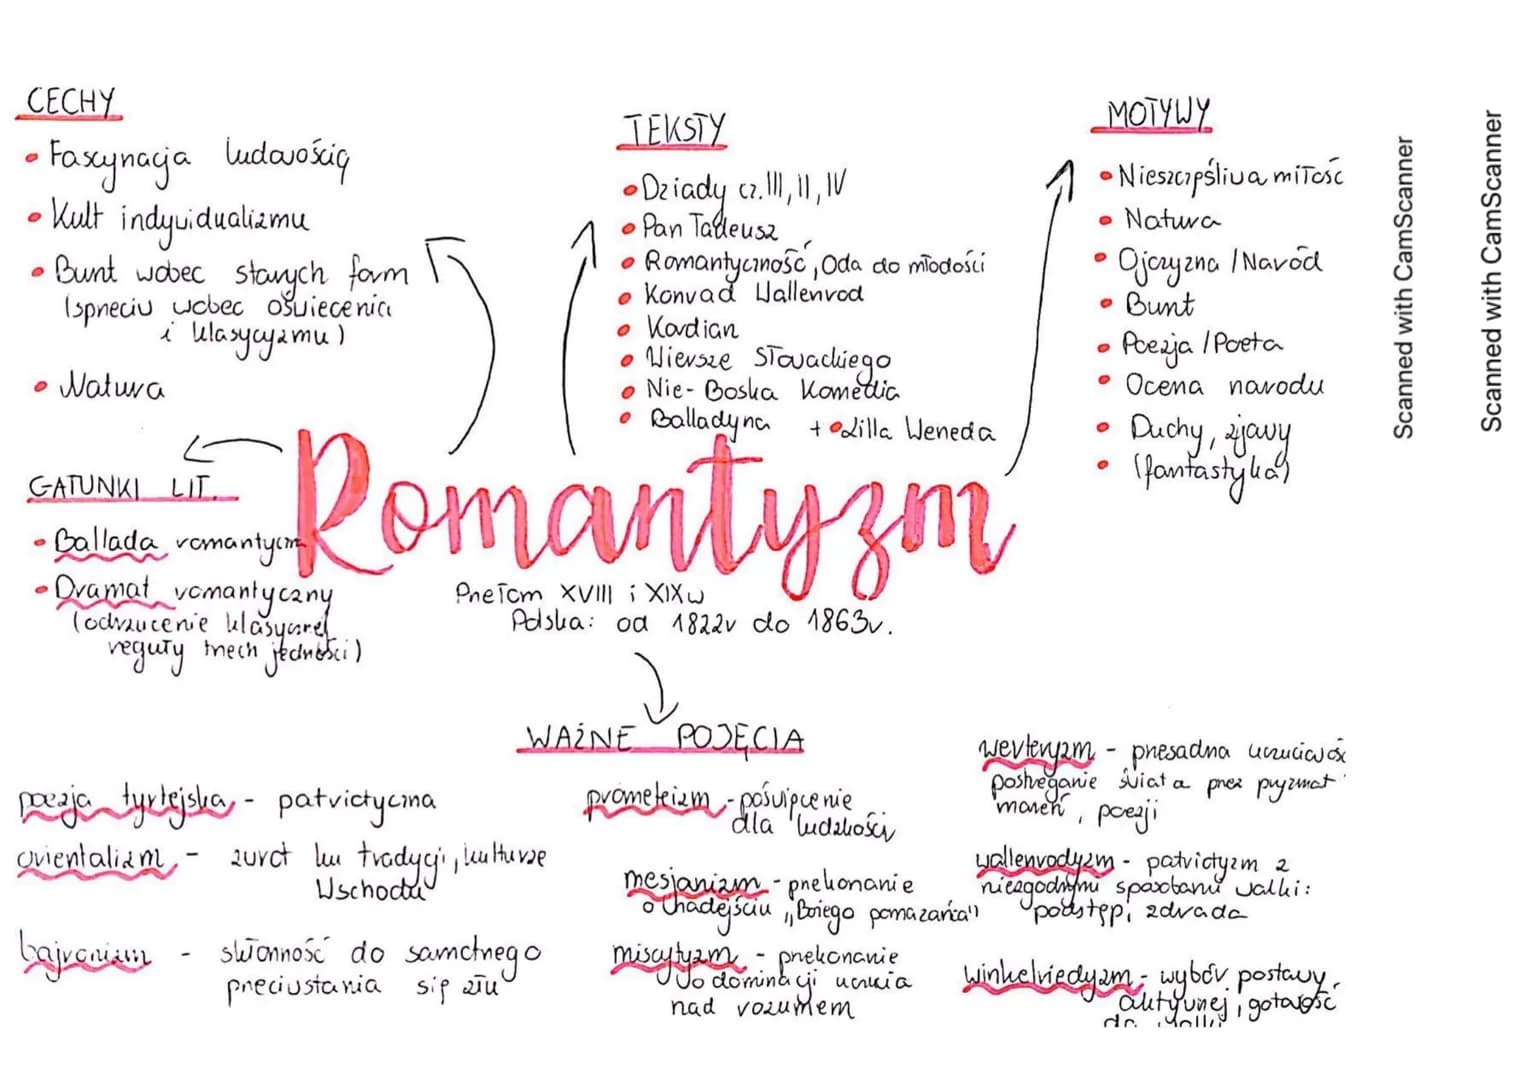 CECHY
• Fascynacja ludowością
• Kult indywidualizmu
• Bunt wobec starych form
(sprzeciw wobec oświecenia
i klasycyzmu)
• Natura
GATUNKI LIT.
• Ballada romantyczna
• Dramat romantyczny
(odrzucenie klasycznej
reguły trzech jedności)
TEKSTY
• Dziady cz. III, II, IV
• Pan Tadeusz
• Romantyczność, Oda do młodości
• Konrad Wallenrod
• Kordian
• Wiersze Słowackiego
• Nie-Boska Komedia
• Balladyna + • Lilla Weneda
MOTYWY
• Nieszczęśliwa miłość
• Natura
• Ojczyzna / Naród
• Bunt
• Poezja / Poeta
• Ocena narodu
• Duchy, zjawy
• (fantastyka)
Romantyzm
Przełom XVIII i XIX w
Polska: od 1822r do 1863r.
WAŻNE POJĘCIA
poezja tyrtejska - patriotyczna
orientalizm - zwrot ku tradycji, kulturze
Wschodu
bajronizm - skłonność do samotnego
przeciwstania się złu
prometeizm - poświęcenie
dla ludzkości
mesjanizm - przekonanie
o nadejściu „Bożego pomazańca"
mistycyzm - przekonanie
o dominacji uczucia
nad rozumem
werteryzm - przesadna uczuciwość
postrzeganie świata przez pryzmat
marzeń, poezji
wallenrodyzm - patriotyzm z
niezgodnymi sposobami walki:
podstęp, zdrada
winkelriedyzm - wybór postawy
aktywnej, gotowość
do walki
Scanned with CamScanner
Scanned with CamScanner